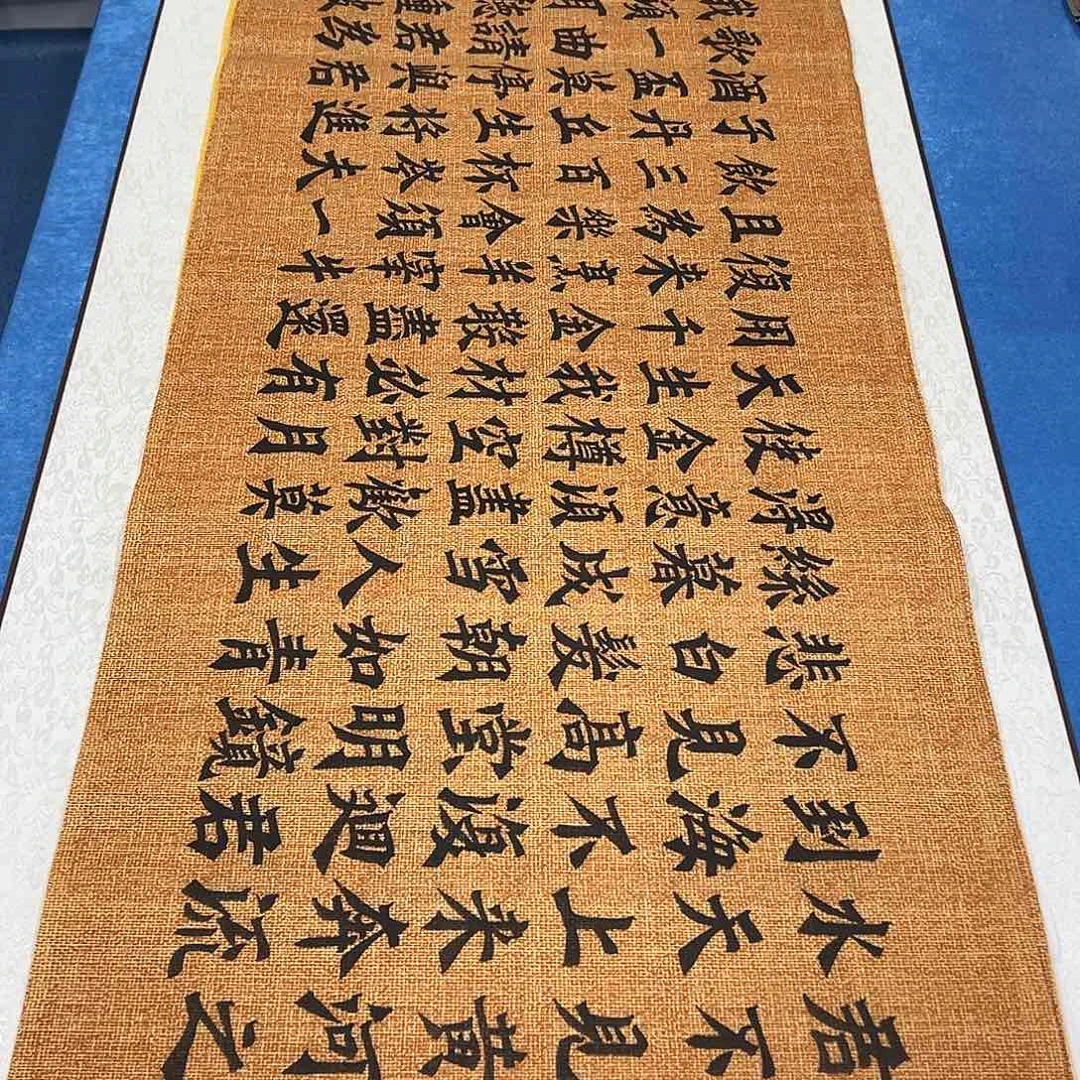 君不見黄河之
水天上来奔流
到海不復廻君
不見高堂明鏡
悲白髮朝如青
絲暮成雪人生
得意須盡歡莫
使金樽空對月
天生我材必有
用千金散盡還
復来烹羊宰牛
且為樂會須一
飲三百杯岑夫
子丹丘生将進
酒盃莫停與君
歌一曲請君為